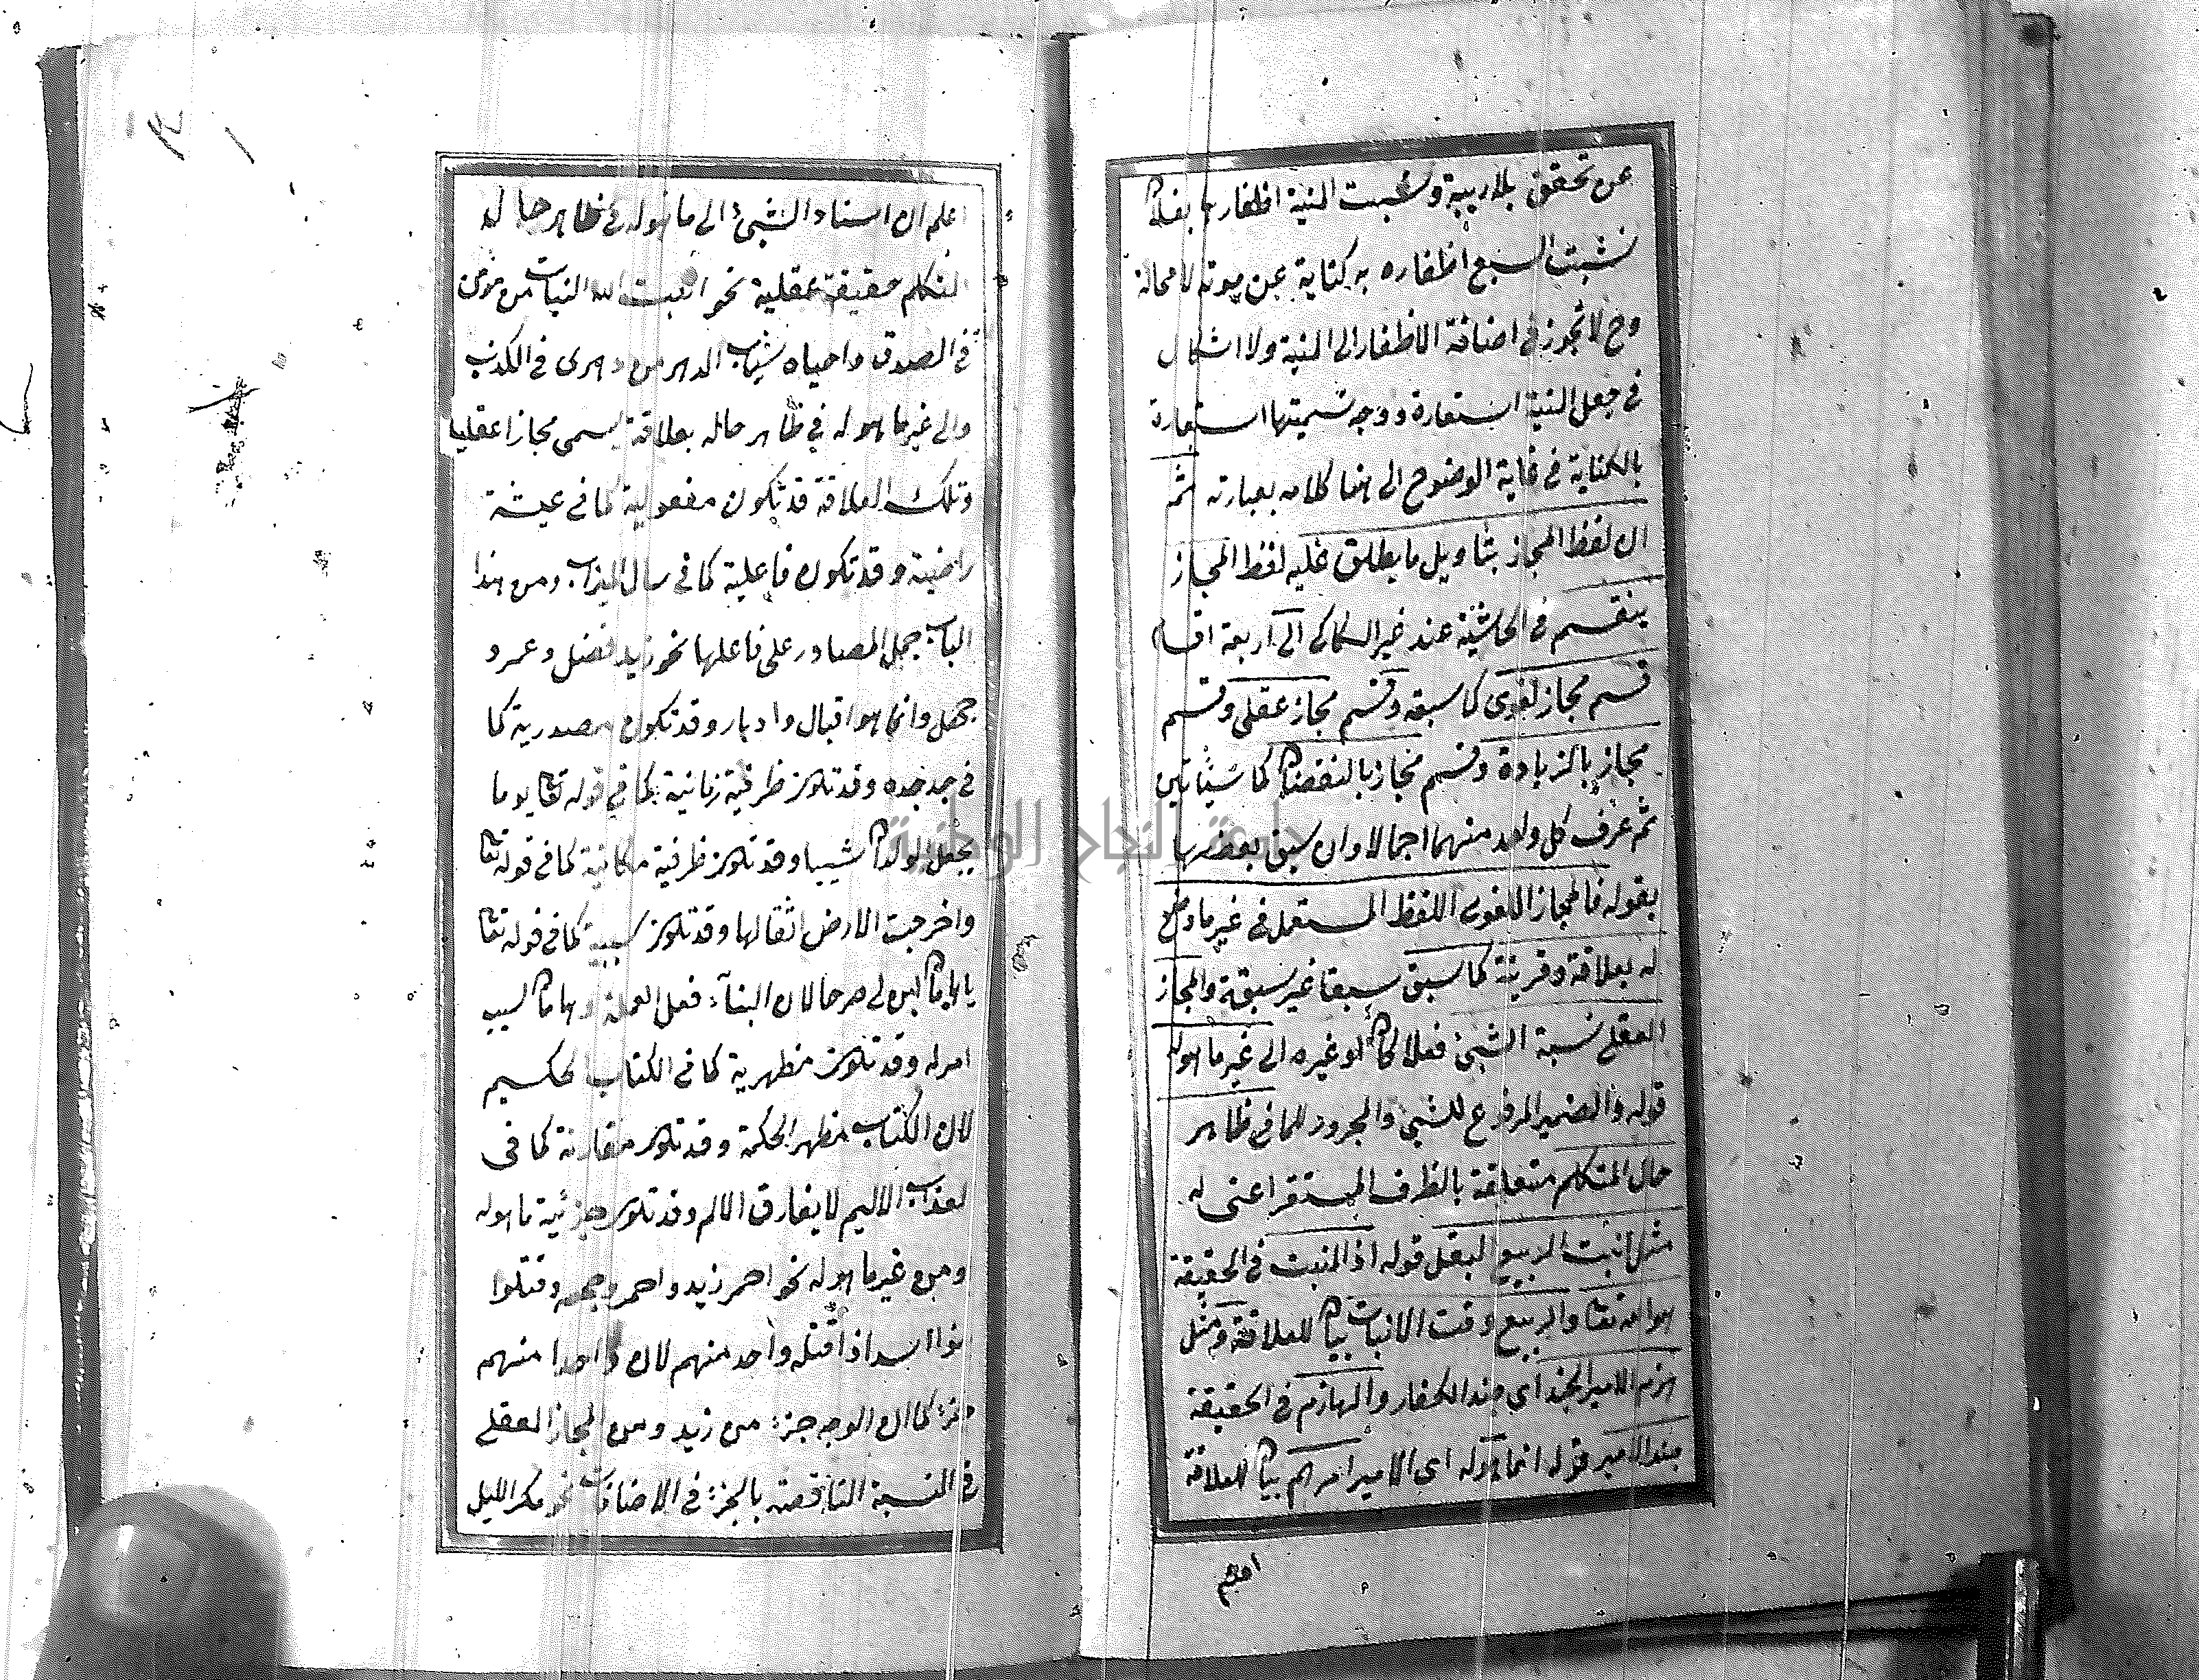 عن تحقق بلا ريبة ونشبت المنية اظفارها بفلان
نشبت السبع اظفاره به كناية عن موته لا محالة
وح لا تجوز في اضافة الاظفار الى المنية ولا اشكال
في جعل المنية استعارة ووجه تسميتها استعارة
بالكناية في غاية الوضوح الى هنا كلامه بعبارته ثم
ان لفظ المجاز بتاويل ما يطلق عليه لفظ المجاز
ينقسم في الحاشية عند غير السكاكي الى اربعة اقسام
قسم مجاز لغوي كما سبقه وقسم مجاز عقلي وقسم
مجاز بالزيادة وقسم مجاز بالنقصان كما سيأتين
ثم عرف كل واحد منهما اجمالا وان سبق بعضها
بقوله فالمجاز اللغوي اللفظ المستعمل في غير ما وضع
له بعلاقة وقرينة كما سبق سبقا غير سبقة والمجاز
العقلي نسبة الشئ فعلا كان او غيره الى غير ما هو له
قوله والضمير المرفوع للشئ والمجرور لما في ظاهر
حال المتكلم متعلقة بالظرف المستقر اعنى له
مثل انبت الربيع البقل قوله اذ المنبت في الحقيقة
هو الله تعا والربيع وقت الانبات بيان للعلاقة ومثل
هزم الامير الجند اي جند الكفار والهازم في الحقيقة
جند الامير قوله انما هو له اى الامير امرهم بيان للعلاقة
اعلم
جامعة النجاح الوطنية
اعلم ان اسناد الشئ الى ما هو له في ظاهر حال
المتكلم حقيقة عقلية نحو انبت الله النبات من مؤمن
في الصدق واحياه شباب الدهر من دهرى في الكذب
والى غير ما هو له في ظاهر حاله بعلاقة يسمى مجازا عقليا
وتلك العلاقة قد تكون مفعولية كما في عيشة
راضية وقد تكون فاعلية كما في سال الميزاب ومن هذا
الباب حمل المصادر على فاعلها نحو زيد فضل وعمرو
جهل وانما هو اقبال وادبار وقد تكون مصدرية كما
في جد جده وقد تكون ظرفية زمانية كما في قوله تعا يوما
يجعل الولدان شيبا وقد تكون ظرفية مكانية كما في قوله تعا
واخرجت الارض اثقالها وقد تكون سببية كما في قوله تعا
يا هامان ابن لي صرحا لان البناء فعل العملة وهامان سبب
امر له وقد تكون مظهرية كما في الكتاب الحكيم
لان الكتاب مظهر الحكمة وقد تكون مقارنة كما في
لعذاب الاليم لا يفارق الالم وقد تكون جزئية ما هو له
ومن غير ما هو له نحو احمر زيد واحمر وجهه وقتلوا
بنوا اسد اذا قتله واحد منهم لان واحدا منهم
جزء كما ان الوجه جزء من زيد ومن المجاز العقلي
في النسبة الناقصة بالجزء في الاضافات نحو مكر الليل